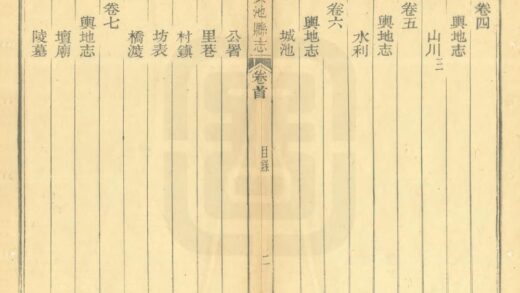 卷四
輿地志
山川二
卷五
輿地志
水利
卷六
輿地志
城池
池縣志
卷首
目錄
二
公署
里巷
村鎮
坊表
橋渡
卷七
輿地志
壇廟
陵墓